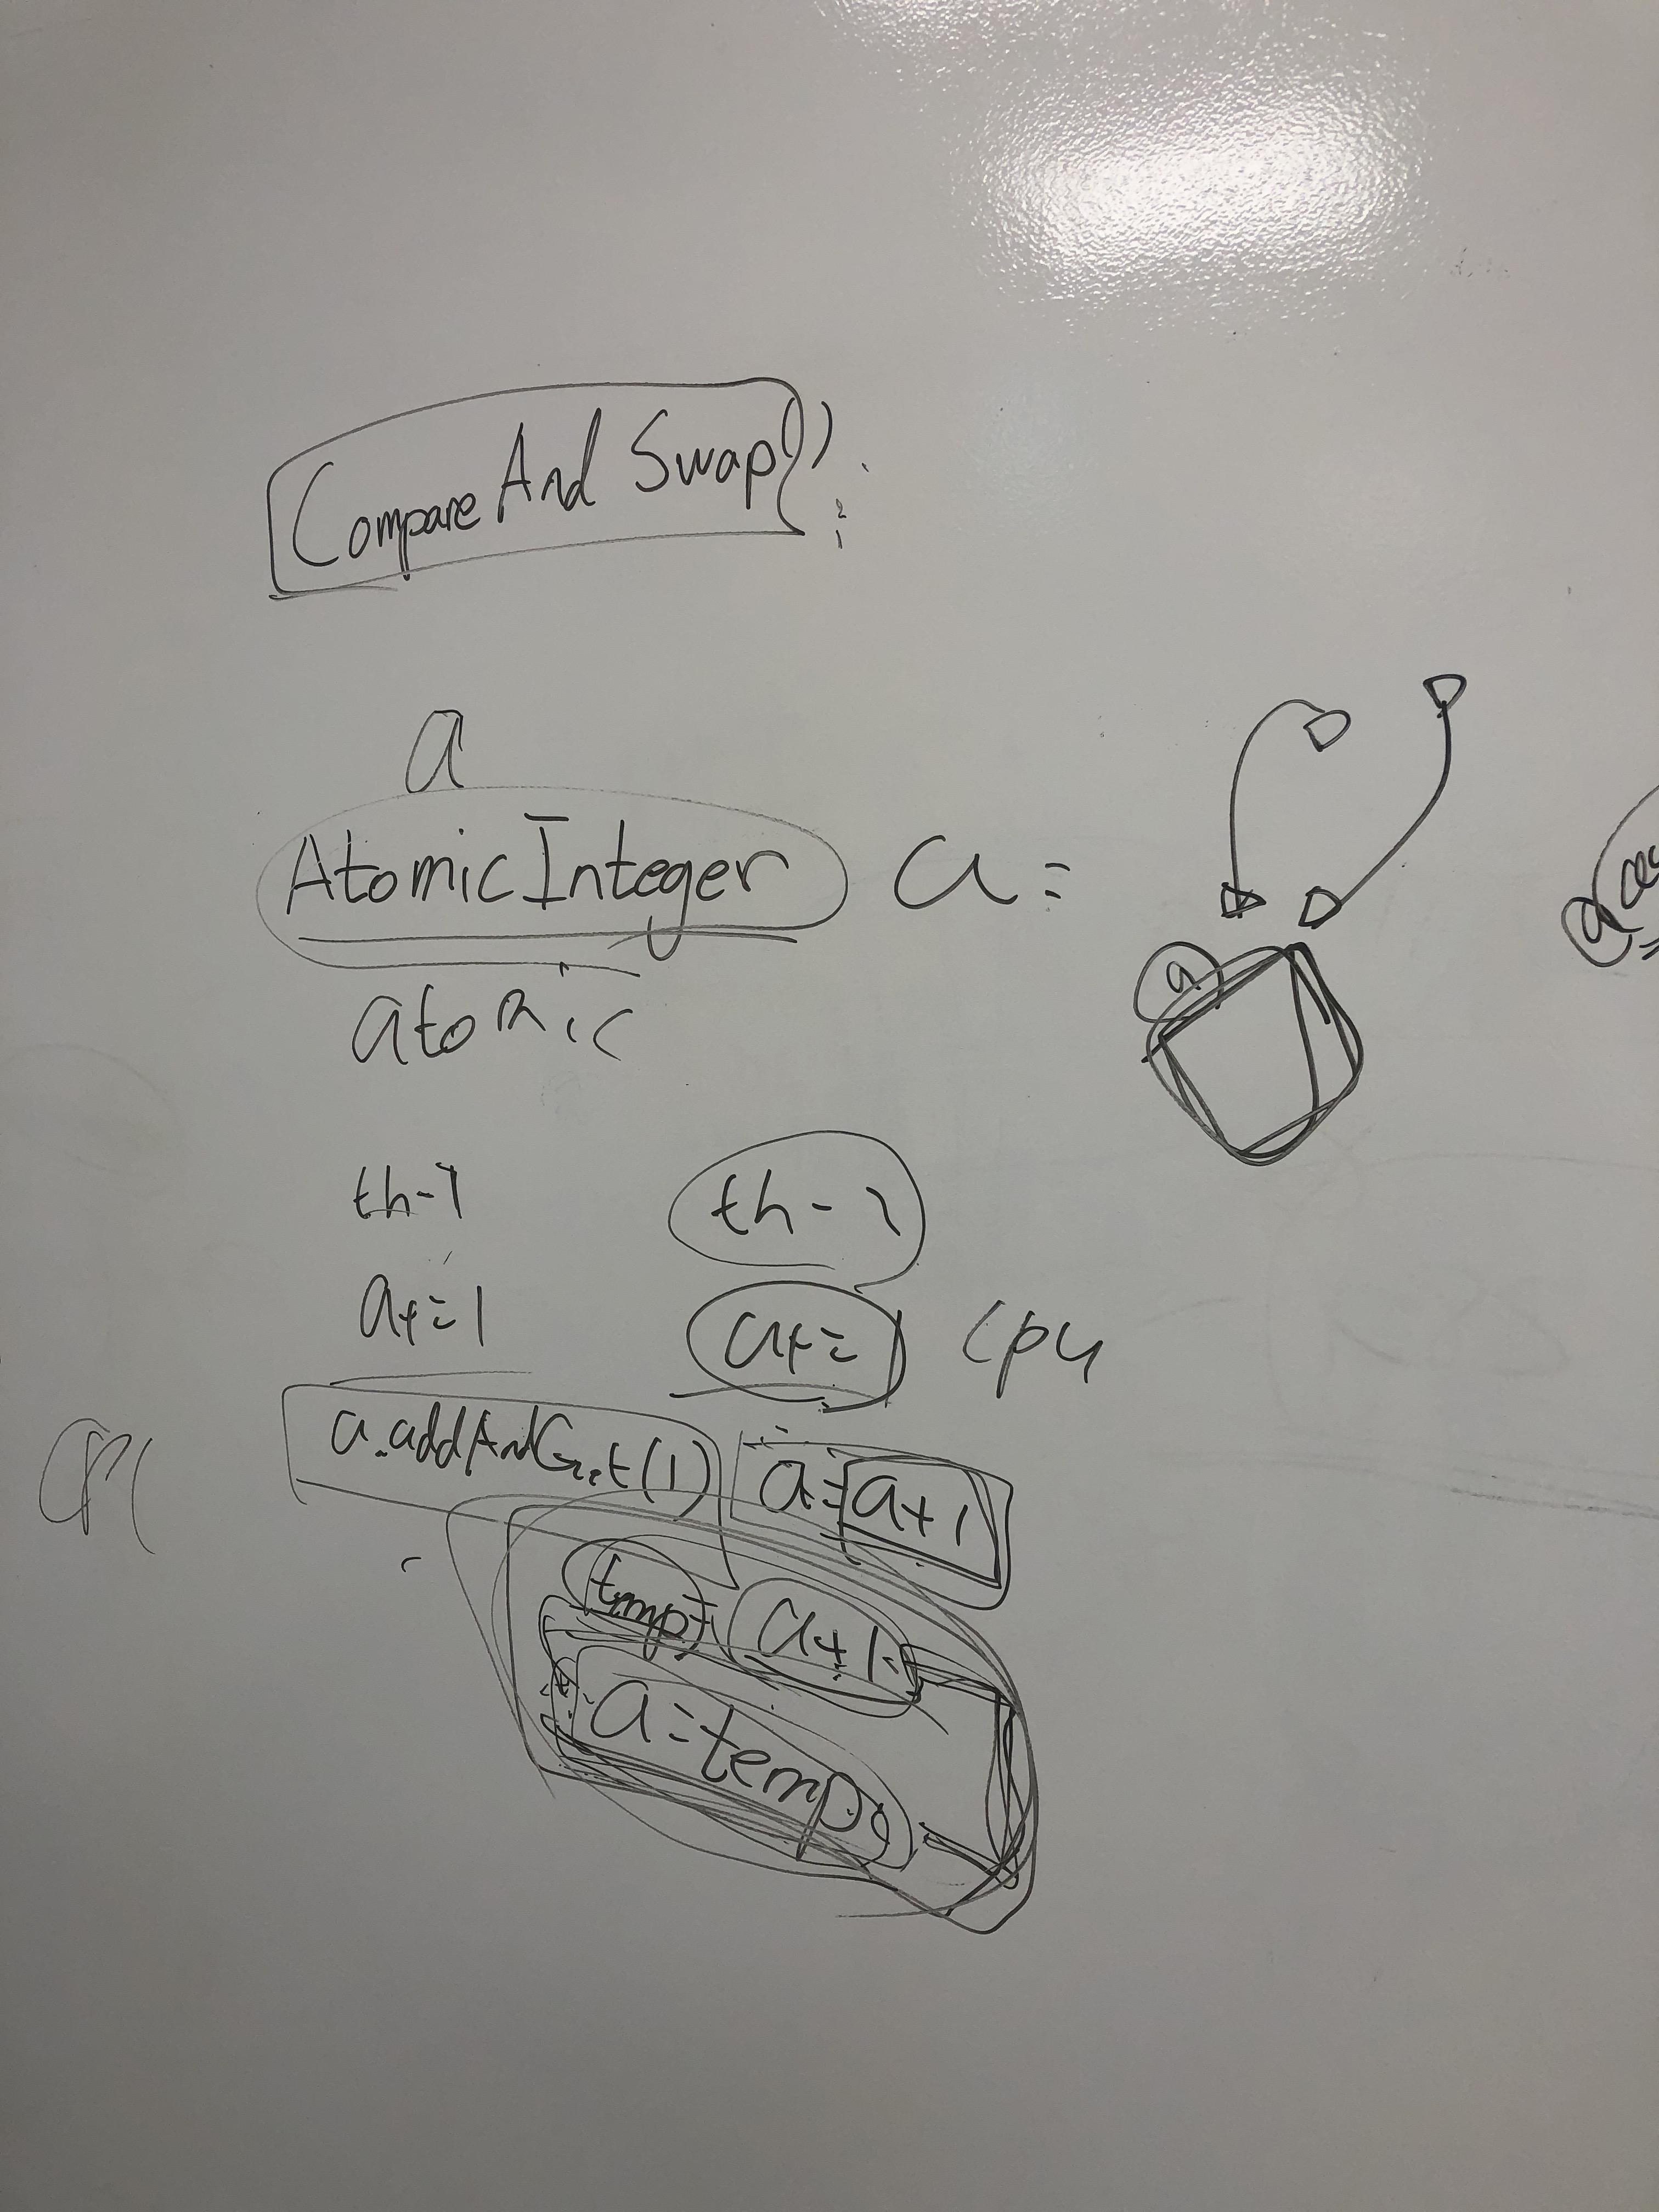 CompareAndSwap()
a
AtomicInteger a =
a
atomic
th-1 th-2
a+=1 a+=1 cpu
a.addAndGet(1) a=a+1
temp= a+1
a=temp